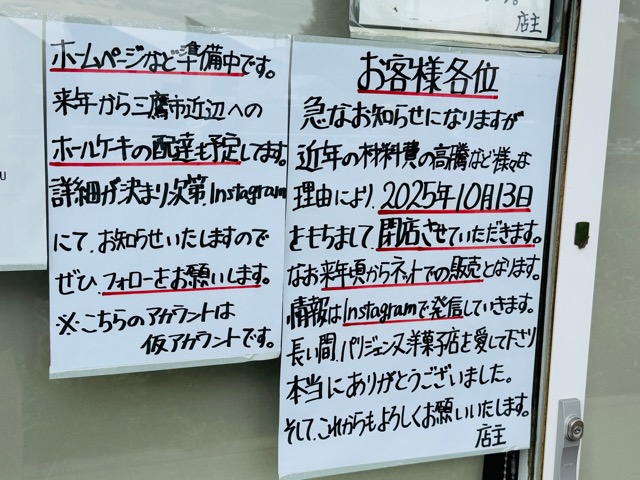 店主
お客様各位
急なお知らせになりますが
近年の材料費の高騰など様々な
理由により、2025年10月13日
をもちまして、閉店させていただきます。
なお来年頃からネットでの販売となります。
情報はInstagramで発信していきます。
長い間、パリジェンヌ洋菓子店を愛して下さり
本当にありがとうございました。
そして、これからもよろしくお願いいたします。
店主
ホームページなど準備中です。
来年から三鷹市近辺への
ホールケーキの配達も予定してます。
詳細が決まり次第、Instagram
にて、お知らせいたしますので
ぜひ、フォローをお願いします。
※こちらのアカウントは
仮アカウントです。
U